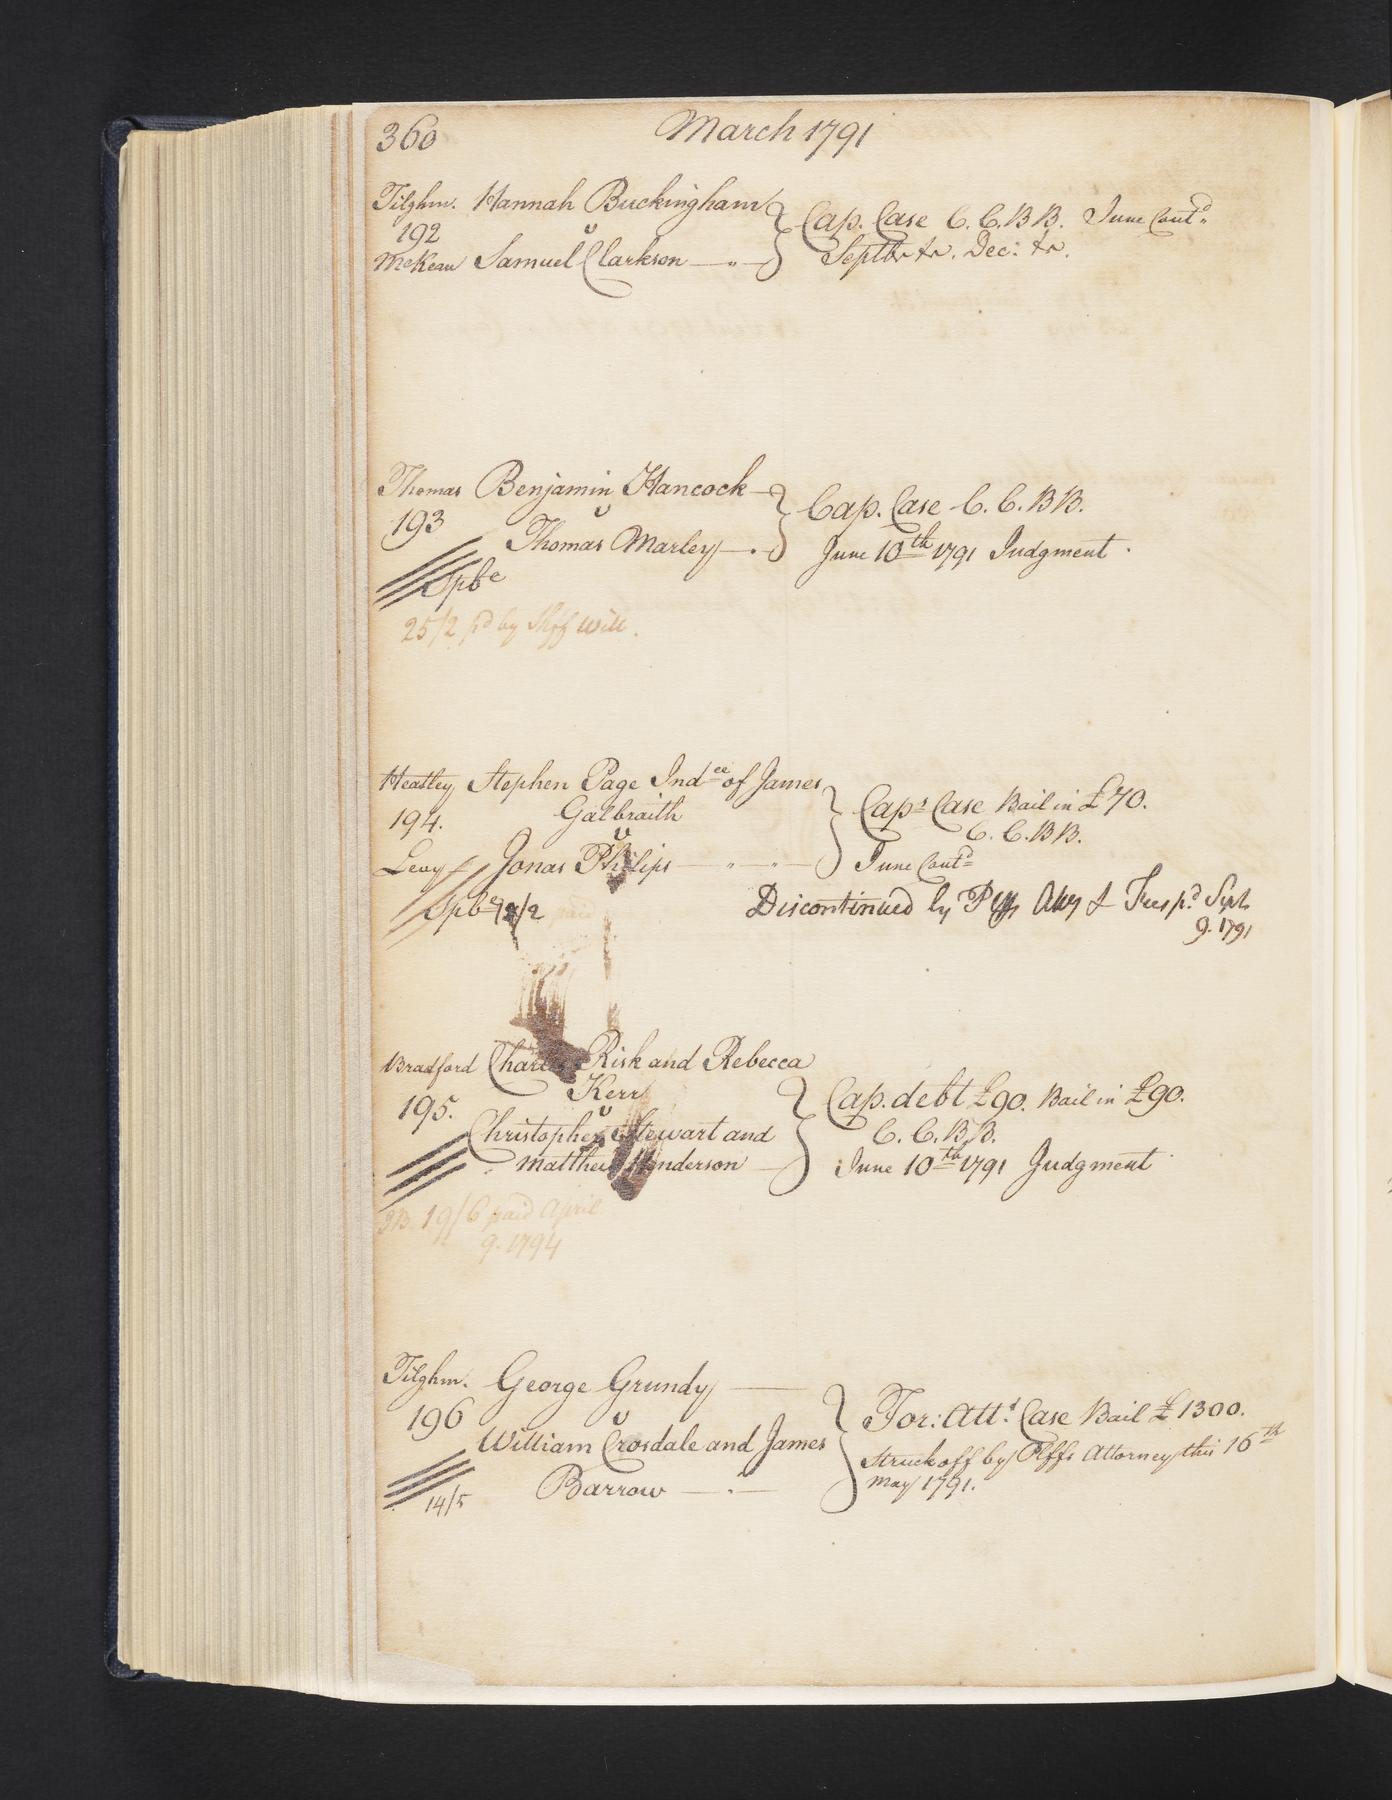 360 March 1791
Tilghm. Hannah Buckingham
192 v
McKean Samuel Clarkson
Cap. Case C. C. B B. June Contd.
Septbr do. Dec: do.
Thomas Benjamin Hancock
193 v
Thomas Marley
Spbe
25/2 pd by Shff Will.
Cap. Case C. C. B B.
June 10th 1791 Judgment.
Heatley Stephen Page Indee of James
194. Galbraith
v
Levy Jonas Philips
Spbe /2 paid
Caps Case Bail in £70.
C. C. B B.
June Contd
Discontinued by Pffs Atty & Fees pd. Sept
9. 1791
Bradford Charles Risk and Rebecca
Kerr
195. v
Christopher Stewart and
Matthew Henderson
19/6 paid April
9. 1794
Cap. debt £90. Bail in £90.
C. C. B. B.
June 10th 1791 Judgment
Tilghm. George Grundy
196 v
William Crosdale and James
Barrow
14/5
For: Att.t Case Bail £1300.
Struck off by Plffs Attorney this 16th
May 1791.